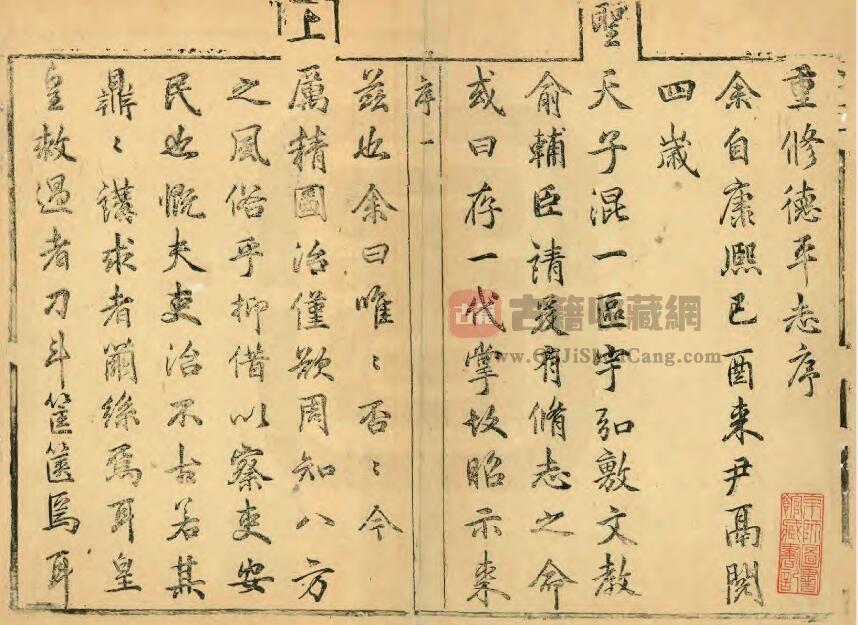 重修德平志序
余自康熈己酉来尹鬲閱
四歲
聖天子混一區宇弘敷文教
俞輔臣請爰有脩志之命
或曰存一代掌故昭示来
序一
兹也余曰唯〻否〻今
上厲精圖治僅欲周知八方
之風俗乎抑借以察吏安
民也慨夫吏治不古若其
講求者繭絲焉耳皇
皇救過者刀斗筐篋焉耳
京師圖書館藏書記
古籍收藏網
www.GuJiShouCang.com